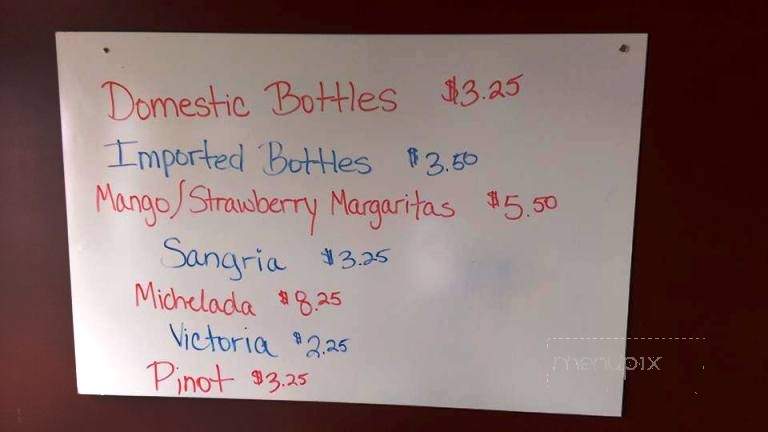 Domestic Bottles $3.25
Imported Bottles $3.50
Mango/Strawberry Margaritas $5.50
Sangria $3.25
Michelada $8.25
Victoria $2.25
Pinot $3.25
menupix